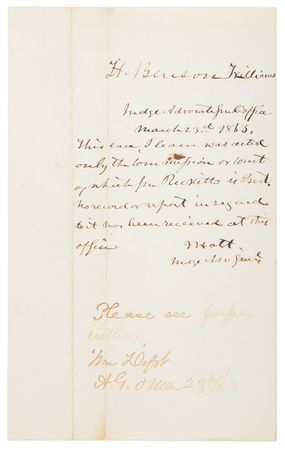 H. Benson Williams
Judge Advocate Genl's Office
March 23d 1863.
This case, I learn was acted
on by the Commission or Court
of which Gen Ricketts is Prest.
No record or report in regard
to it has been received at this
office
J Holt
Judge Adv Genl
Please see paper
within
War Dept
A.G.O Mar 23d/63